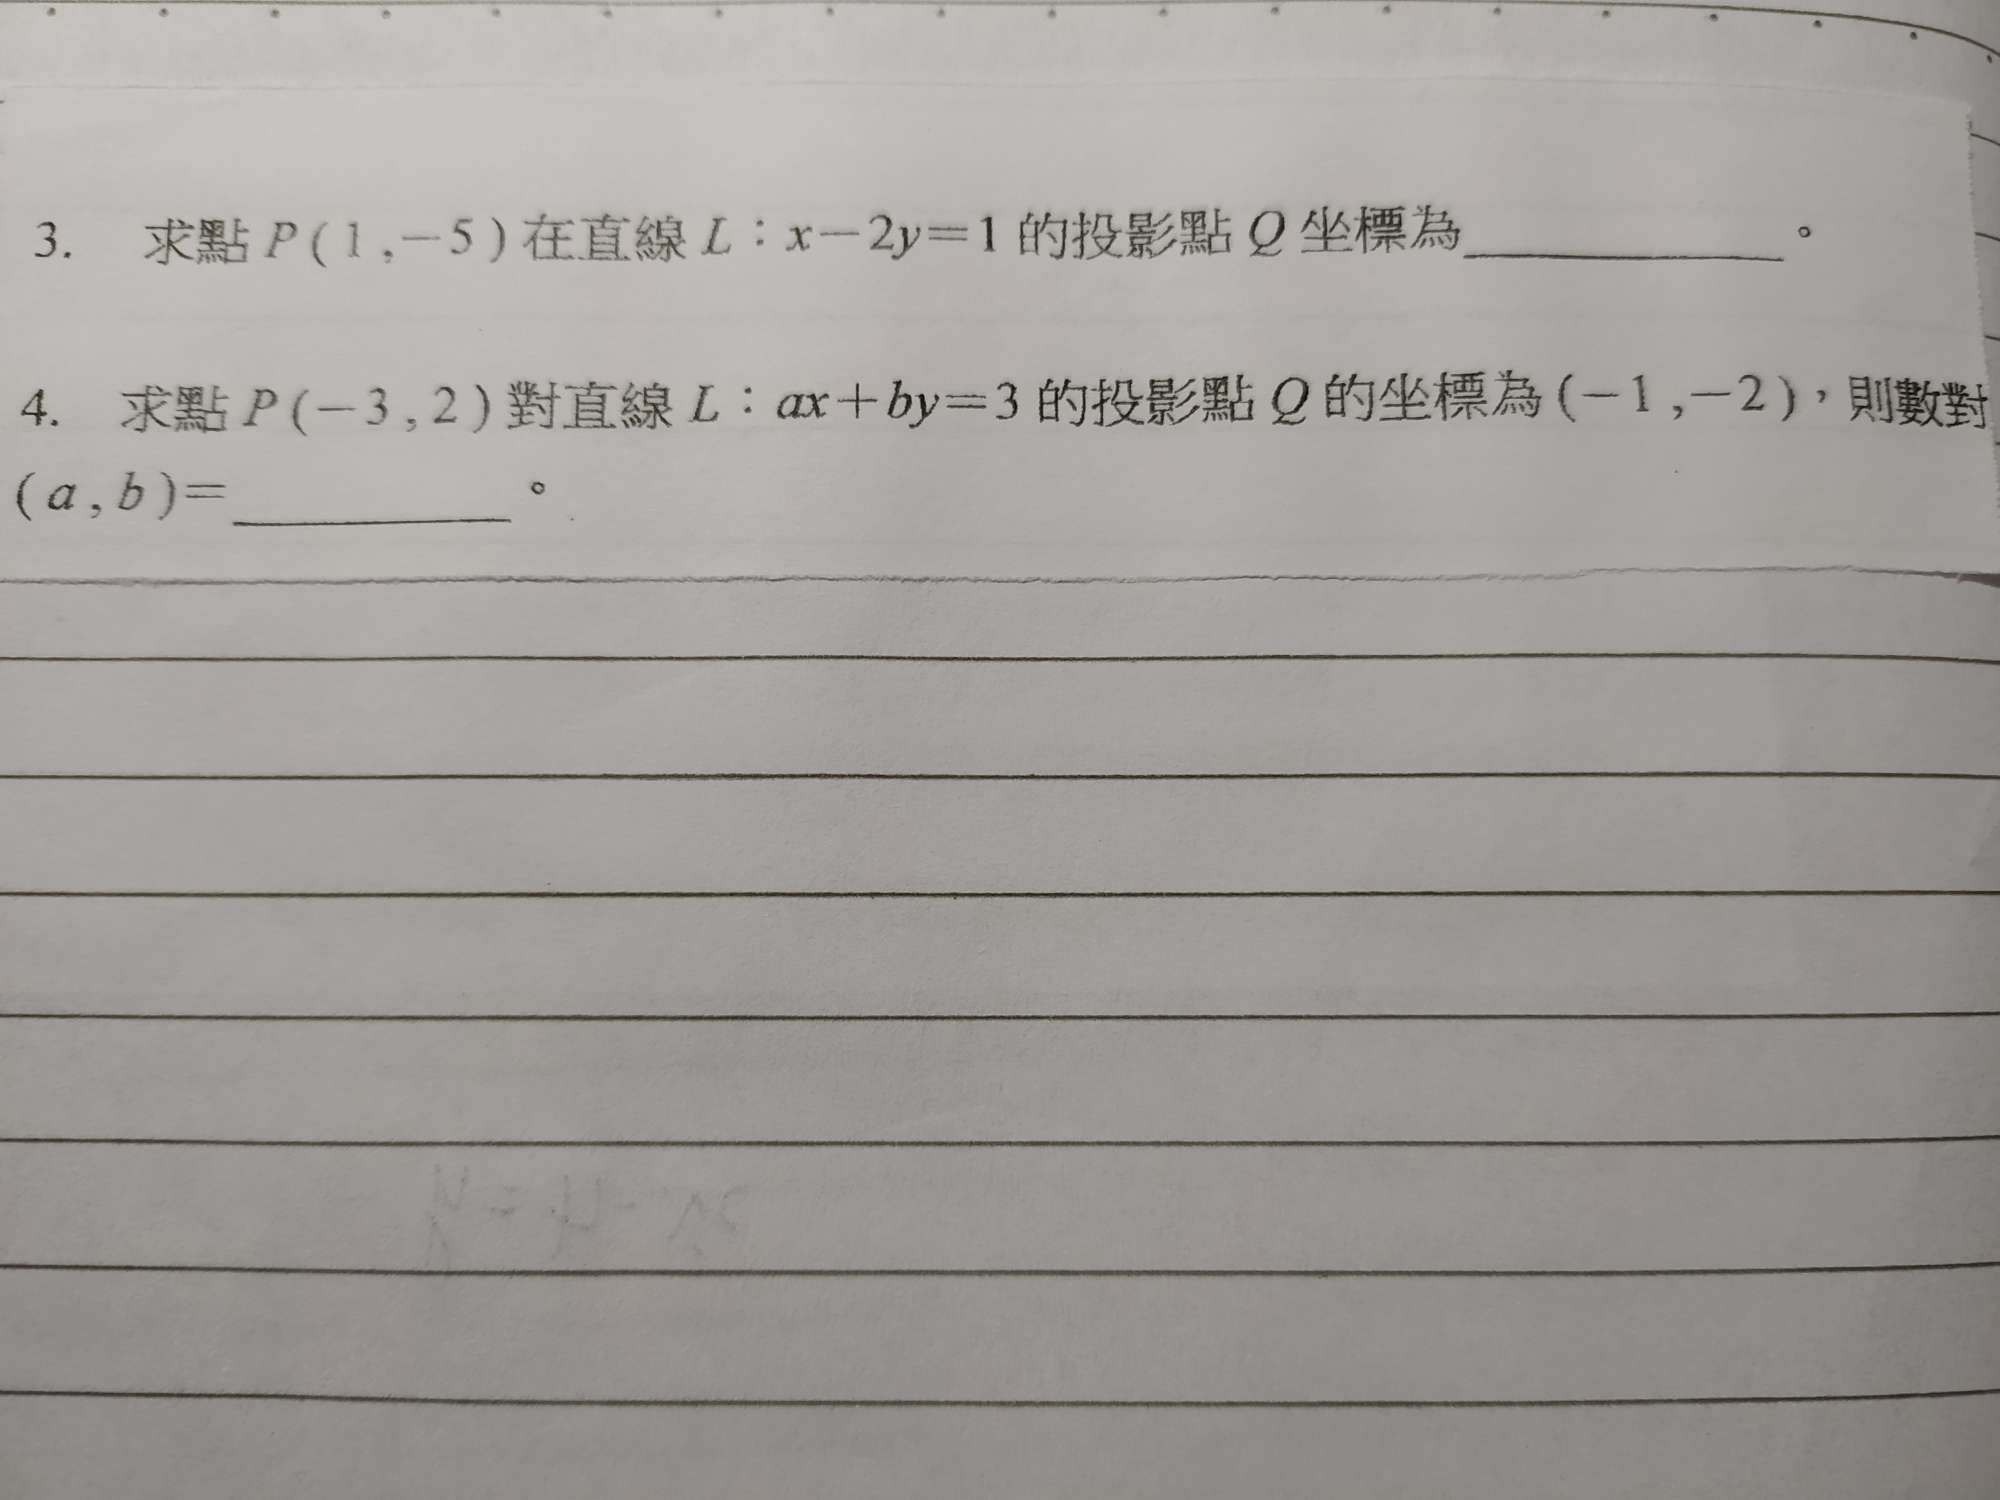 3. 求點 P(1,−5)在直線 L：x−2y=1 的投影點 Q 坐標為＿＿＿＿＿＿。
4. 求點 P(−3,2)對直線 L：ax+by=3 的投影點 Q 的坐標為(−1,−2)，則數對
(a,b)=＿＿＿＿＿。